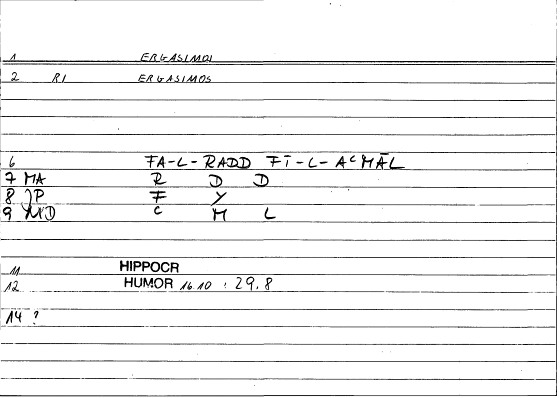 1 ERGASIMOI
2 RI ERGASIMOS
6 FA-L-RADD FĪ-L-AᶜMĀL
7 MA R D D
8 JP F Y
9 MD C M L
11 HIPPOCR
12 HUMOR 16.10 : 29.8
14 ?